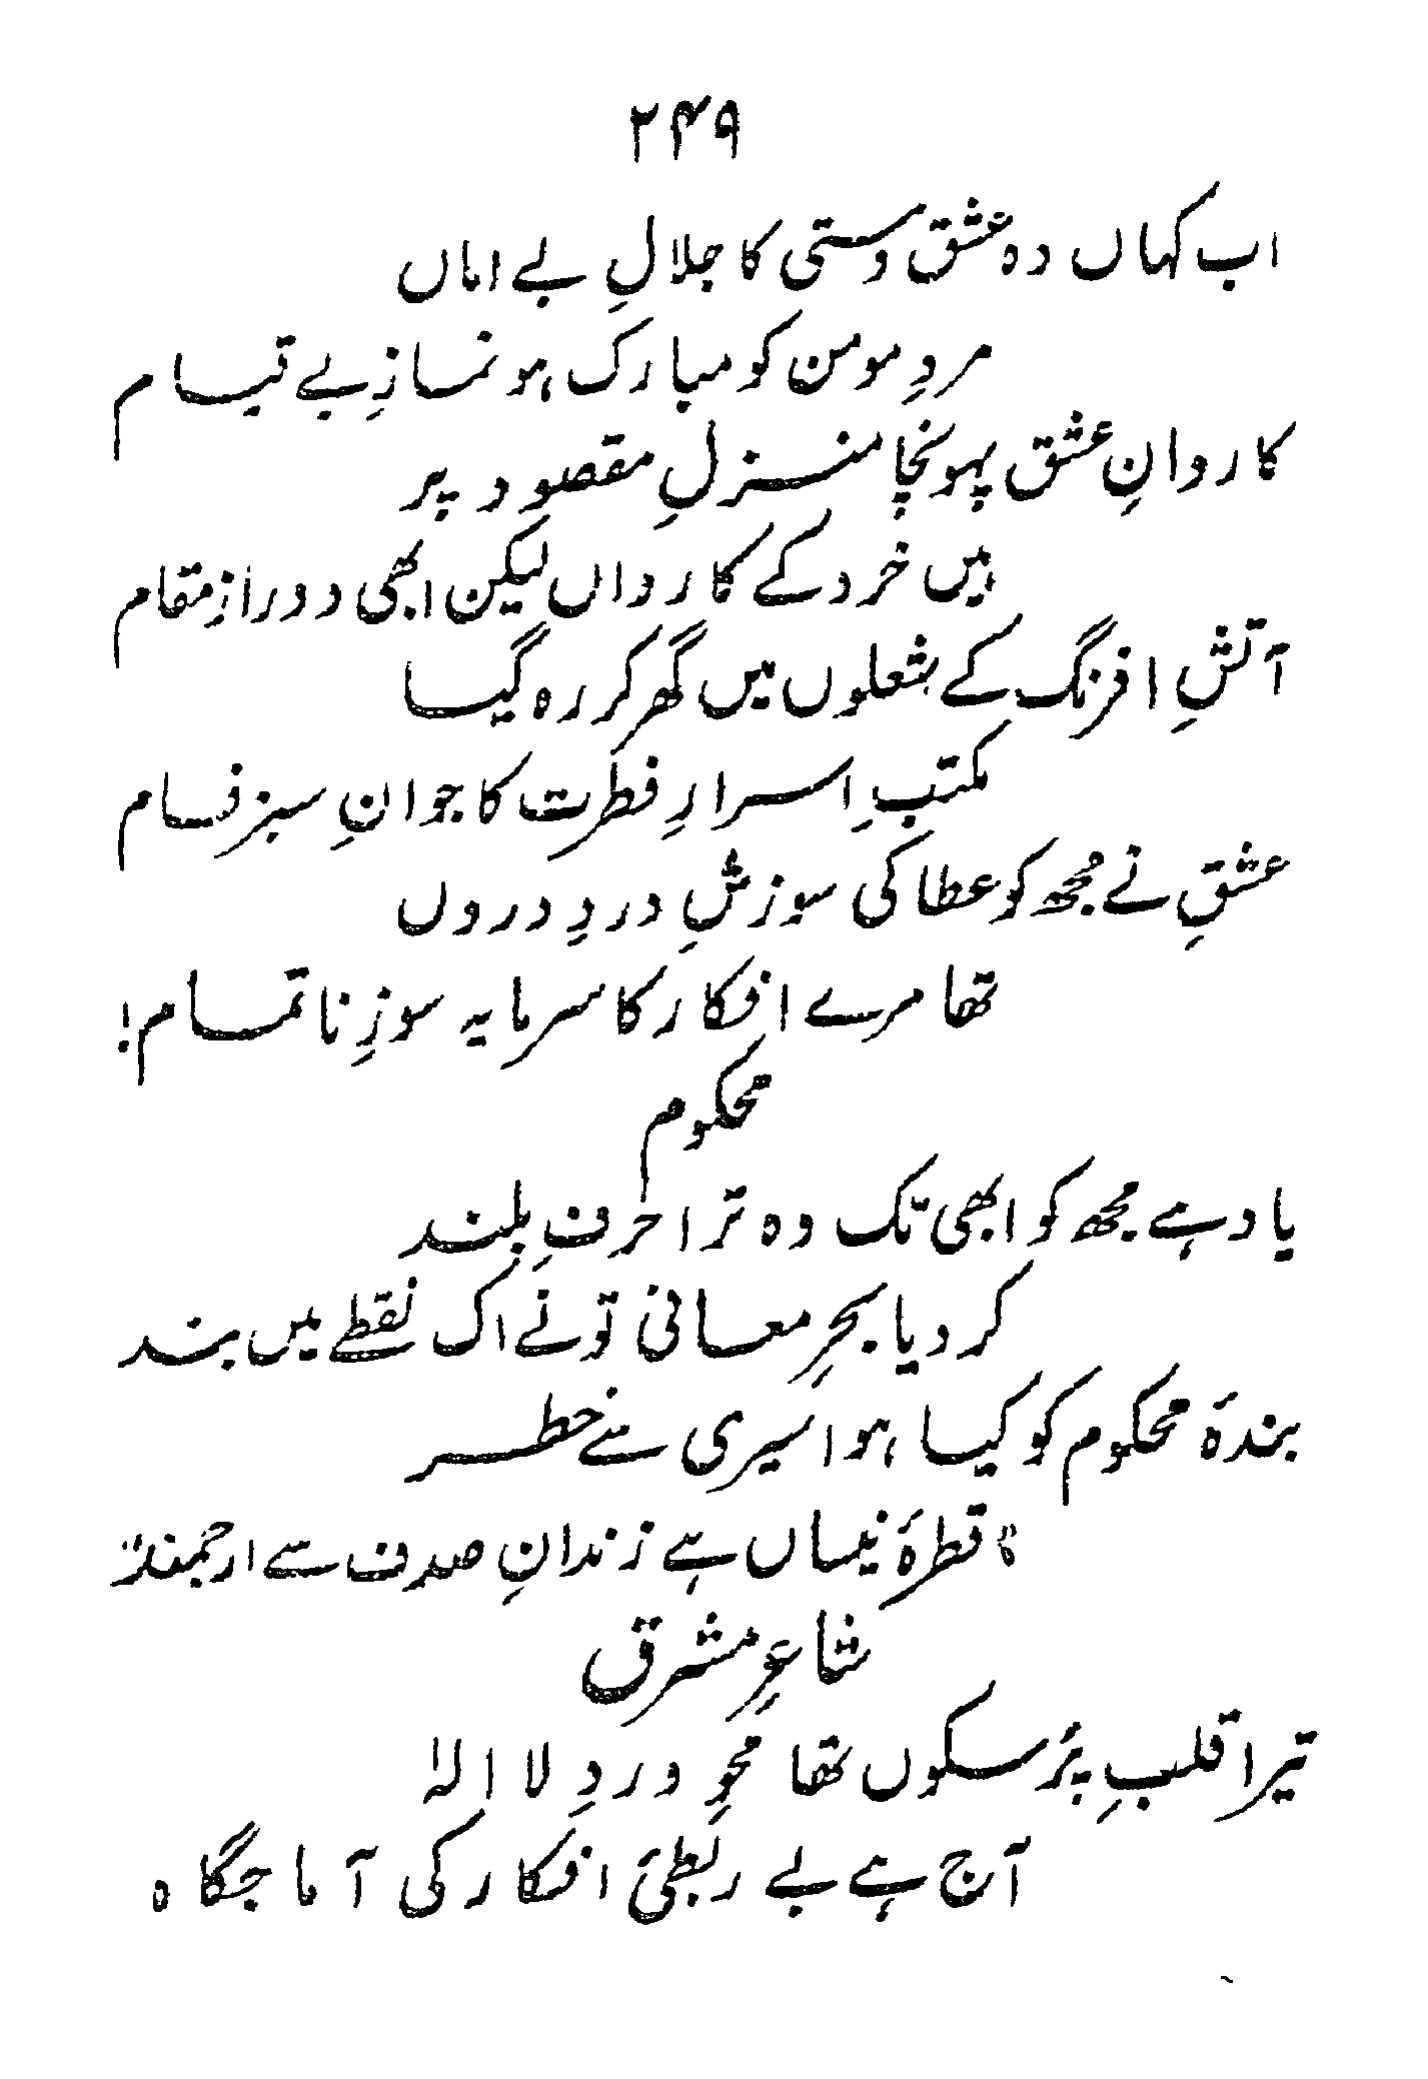 ۲۴۹
اب کہاں وہ عشق و مستی کا جلالِ بے اماں
مردِ مومن کو مبارک ہو نمازِ بے قیام
کاروانِ عشق پہونچا منزلِ مقصود پر
ہیں خرد کے کارواں لیکن ابھی دور از مقام
آتشِ افرنگ کے شعلوں میں گھر کر رہ گیا
مکتبِ اسرارِ فطرت کا جوانِ سبز فام
عشقِ نے مجھ کو عطا کی سوزشِ دردِ دروں
تھا مرے افکار کا سرمایہ سوزِ ناتمام!
محکوم
یاد ہے مجھ کو ابھی تک وہ ترا حرفِ بلند
کر دیا بحرِ معانی تو نے اک نقطے میں بند
بندۂ محکوم کو کیا ہو اسیری سے خطر
"قطرۂ نیساں ہے زندانِ صدف سے ارجمند"
شاعرِ مشرق
تیرا قلبِ پُر سکوں تھا محوِ وردِ لا الٰہ
آج ہے بے ربطیٔ افکار کی آماجگاہ